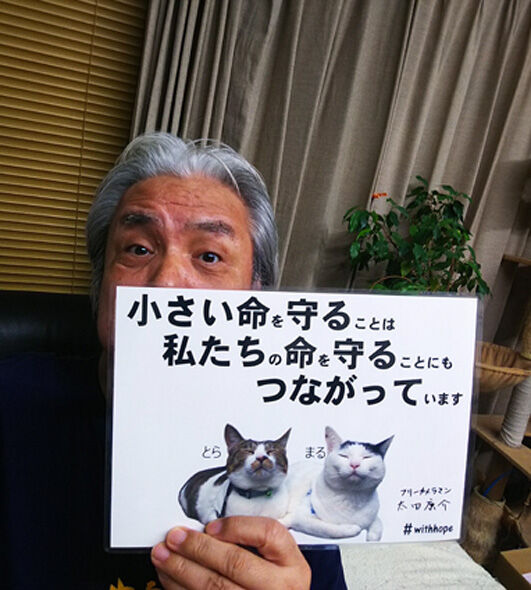 小さい命を守ることは
私たちの命を守ることにも
つながっています
とら
まる
フリーカメラマン
太田康介
#withhope